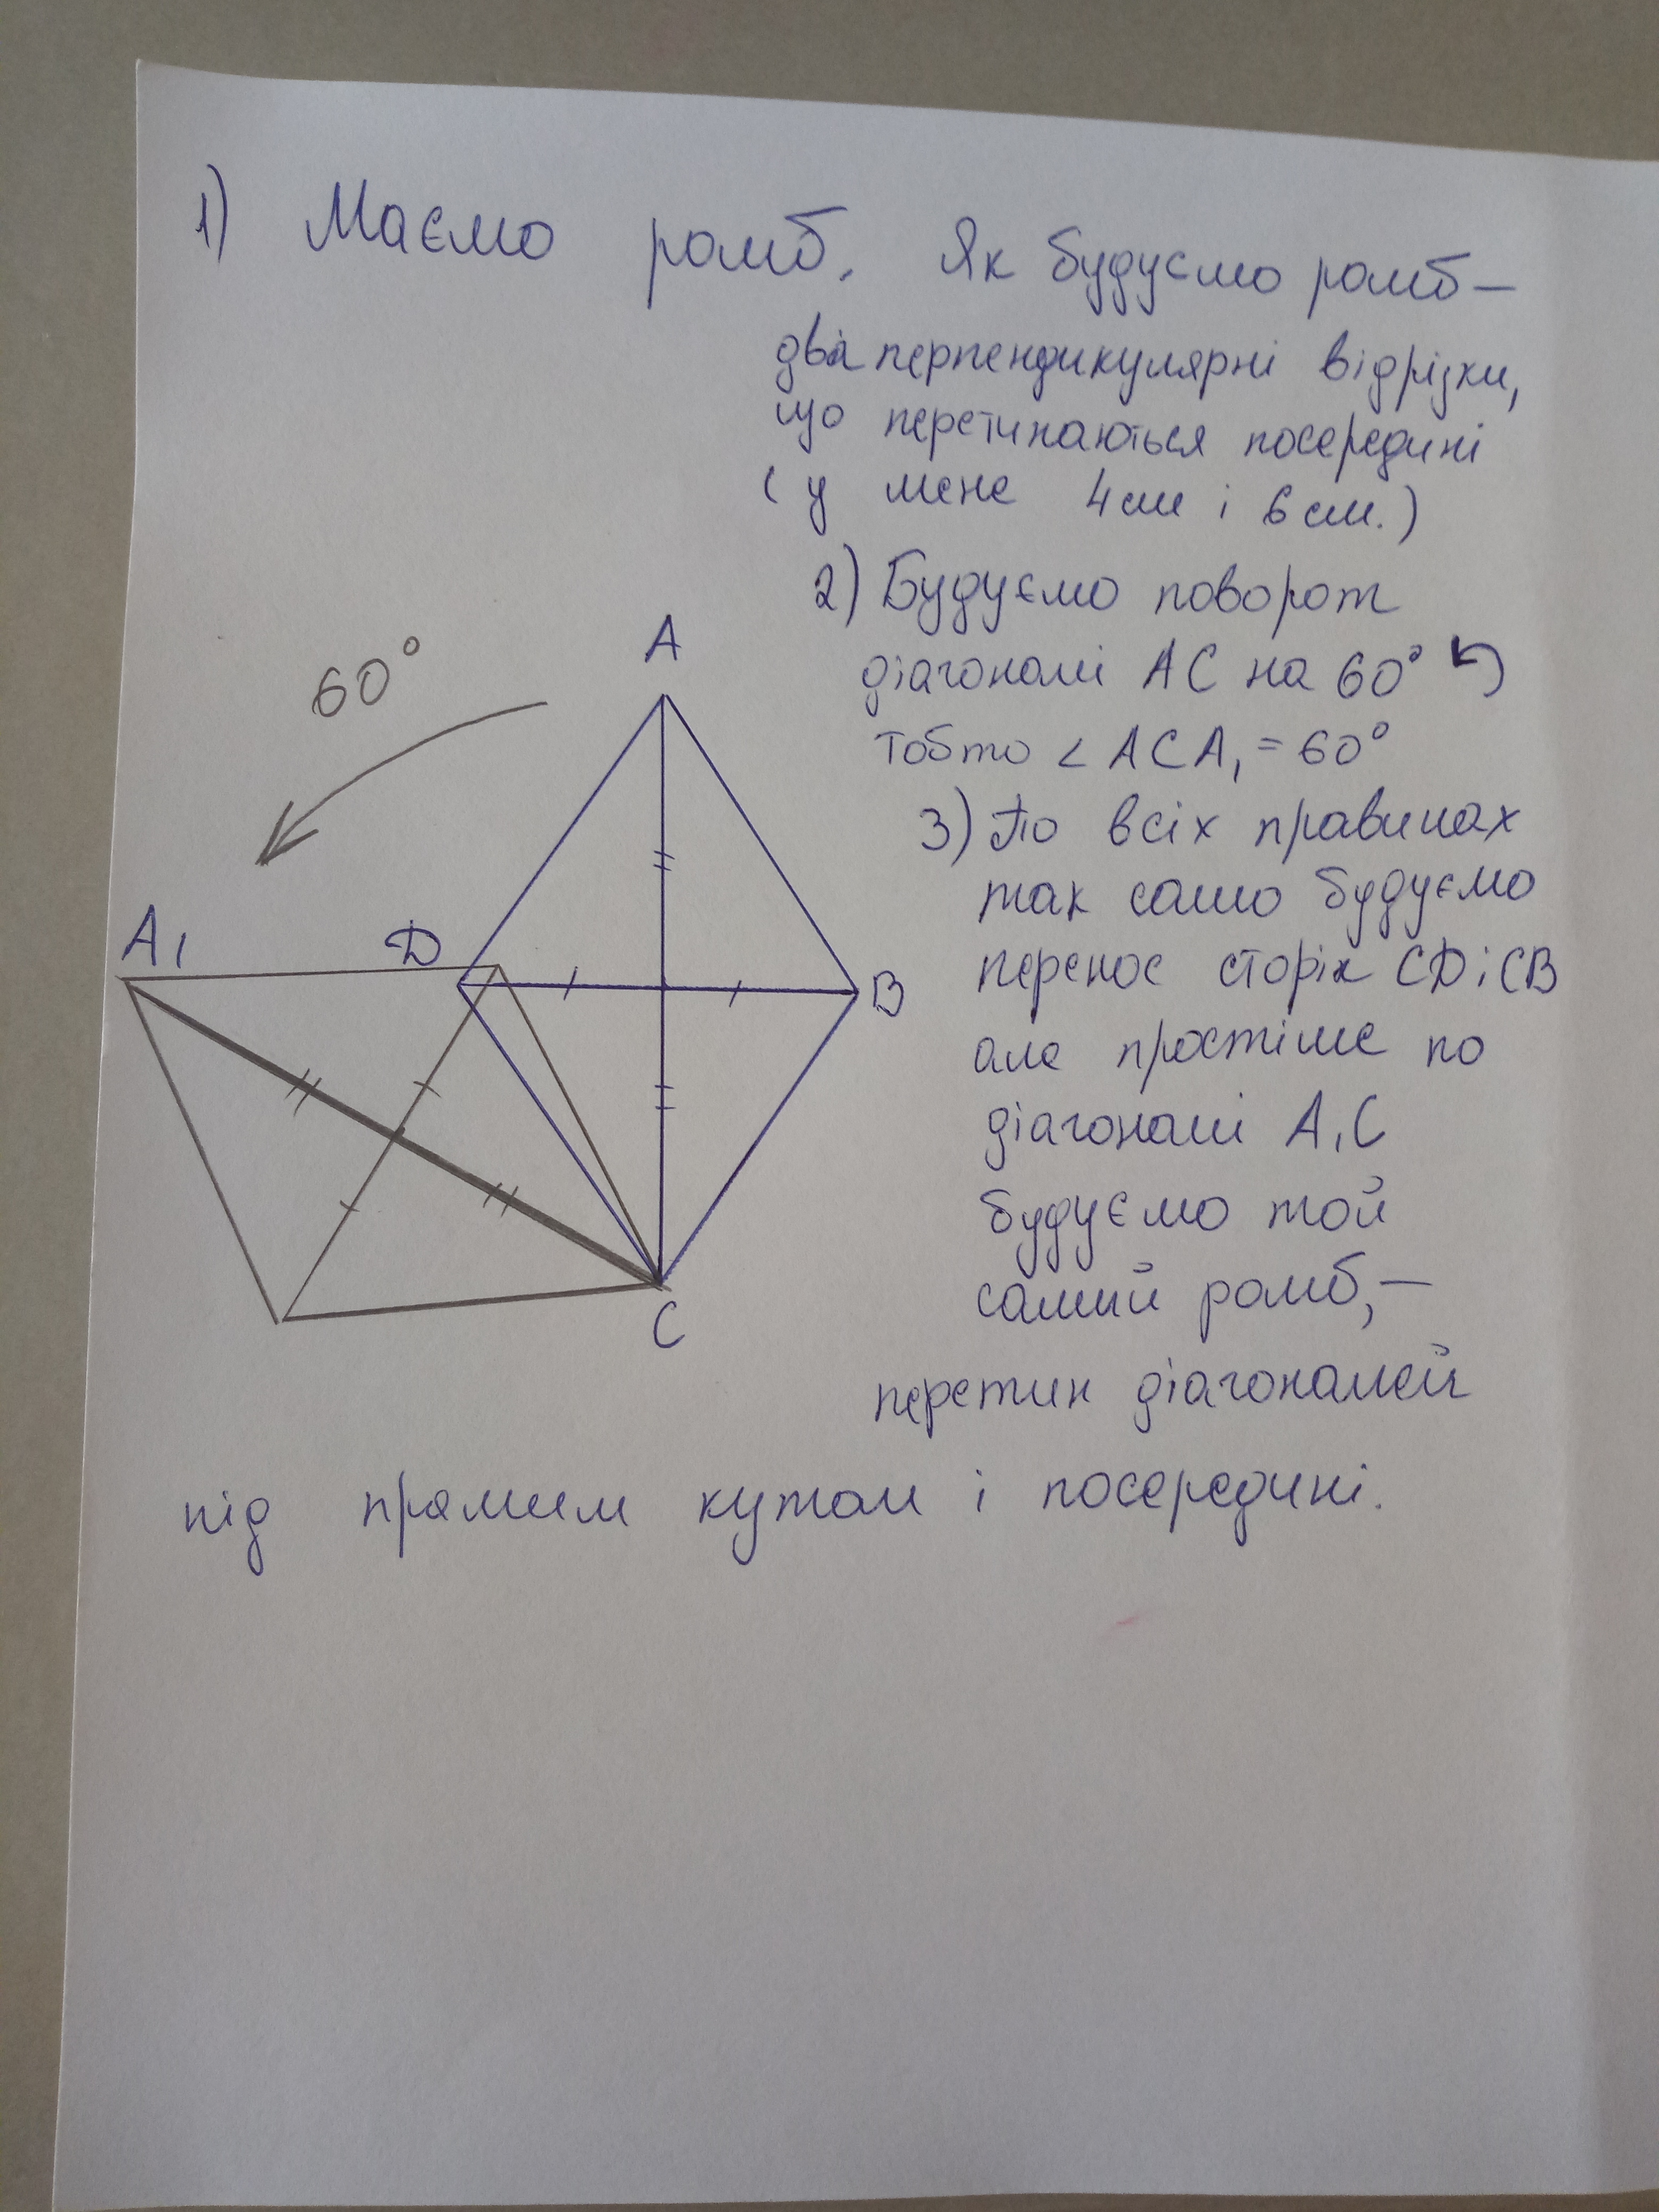 1) Маємо ромб. Як будуємо ромб –
два перпендикулярні відрізки,
що перетинаються посередині
( у мене 4 см і 6 см.)
2) Будуємо поворот
діагоналі АС на 60°
тобто < АСА₁ = 60°
3) По всіх правилах
так само будуємо
перенос сторін CD і CB
але простіше по
діагоналі А₁С
будуємо той
самий ромб, –
перетин діагоналей
під прямим кутом і посередині.
60°
A
A₁
D
B
C